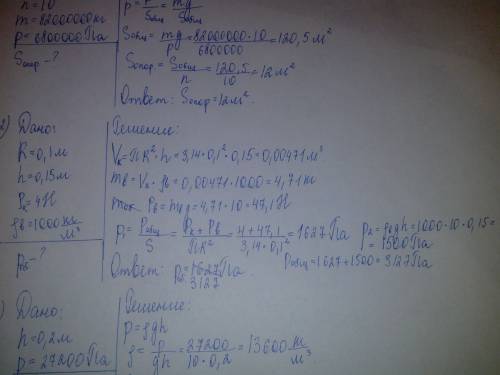 n=10
m=82000000кг
p=6800000Па
Sопор-?
p=F/Sобщ=mg/Sобщ
Sобщ=mg/p=82000000·10/6800000=120,5м²
Sопор=Sобщ/n=120,5/10=12м²
Ответ: Sопор=12м².
2) Дано:
R=0,1м
h=0,15м
Pк=4Н
ρв=1000кг/м³
pд-?
Решение:
Vк=ПR²·h=3,14·0,1²·0,15=0,00471м³
mв=Vк·ρв=0,00471·1000=4,71кг
Pв=mg=4,71·10=47,1Н
p₁=Pобщ/S=Pк+Pв/ПR²=4+47,1/3,14·0,1²=1627Па
p₂=ρgh=1000·10·0,15=
=1500Па
pобщ=1627+1500=3127Па
Ответ: =1627Па
3127
) Дано:
h=0,2м
p=27200Па
Решение:
p=ρgh
ρ=p/gh=27200/10·0,2=13600кг/м³